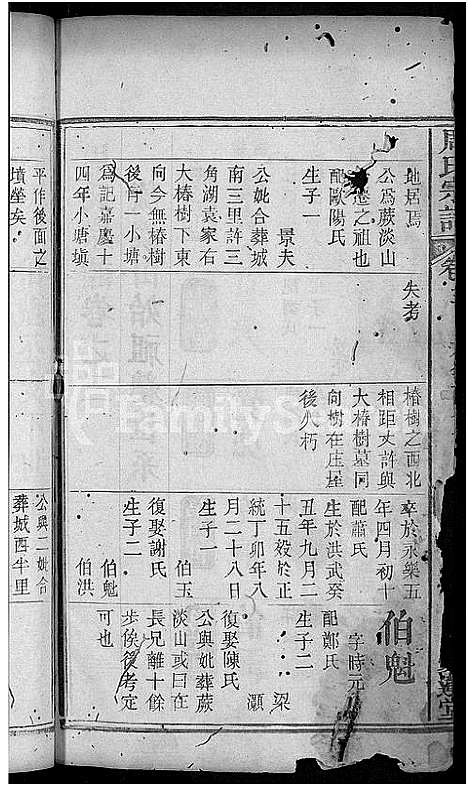 周氏宗譜
地居焉
公為蕨淡山
之祖也
配歐陽氏
生子一
景夫
公妣合葬城
南三里許三
角湖袁家右
大椿樹下東
向今無椿樹
後有一小塘
為記嘉慶十
四年小塘塡
平作後面之
墳塋矣
失考
椿樹之西北
相距丈許與
大椿樹墓同
向樹在庄屋
後久朽
卒於永樂五
年四月初十
配蕭氏
生於洪武癸
丑年九月二
十五殁於正
統丁卯年八
月二十八日
生子一
伯玉
復娶謝氏
生子二
伯魁
伯洪
公與二妣合
葬城西半里
伯魁
字時元
配鄭氏
生子二
梁
灝
復娶陳氏
公與妣葬蕨
淡山或曰在
長兄離十餘
步俟後考定
可也